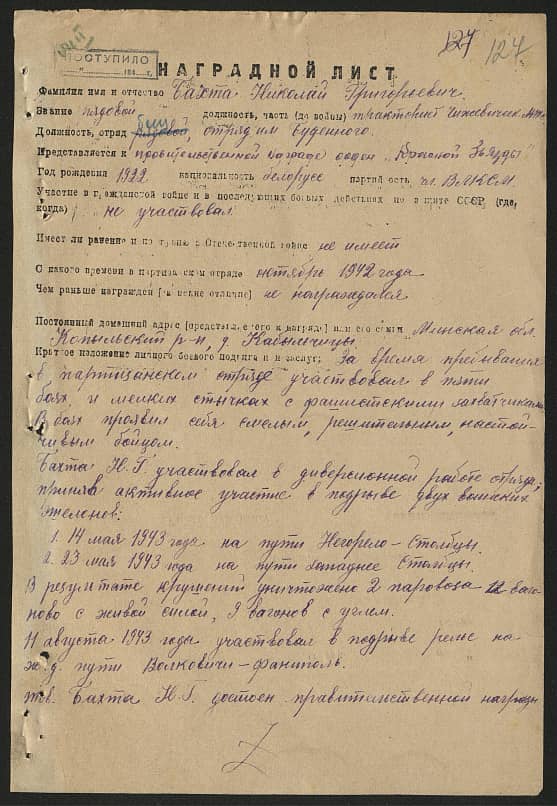 127
124
ПОСТУПИЛО
194 г.
НАГРАДНОЙ ЛИСТ
Фамилия имя и отчество Бахта Николай Григорьевич.
Звание рядовой должность, часть (до войны) тракторист
Должность, отряд боец, отряд им Буденного.
Представляется к правительственной награде орден „Красной Звезды"
Год рождения 1922 национальность белорусс партийность чл. ВЛКСМ
Участие в гражданской войне и в последующих боевых действиях по защите СССР (где,
когда) не участвовал
Имеет ли ранение и контузию в Отечественной войне не имеет
С какого времени в партизанском отряде октябрь 1942 года
Чем раньше награжден [за какие отличие] не награждался
Постоянный домашний адрес [представляемого к награде] или его семьи Минская обл.
Копыльский р-н, д.
Краткое изложение личного боевого подвига или заслуг: За время пребывания
в партизанском отряде участвовал в пяти
боях и мелких стычках с фашистскими захватчиками
В боях проявил себя смелым, решительным, настой-
чивым бойцом.
Бахта Н.Г. участвовал в диверсионной работе отряда;
принял активное участие в подрыве двух воинских
эшелонов:
1. 14 мая 1943 года на пути Негорело-Столбцы.
2. 23 мая 1943 года на пути западнее Столбцы.
В результате крушений уничтожено 2 паровоза 12 ваго
ново с живой силой, 9 вагонов с углем.
11 августа 1943 года участвовал в подрыве рельс на
ж.д. пути Волковичи-Фаниполь.
тов. Бахта Н.Г. достоен правительственной награды